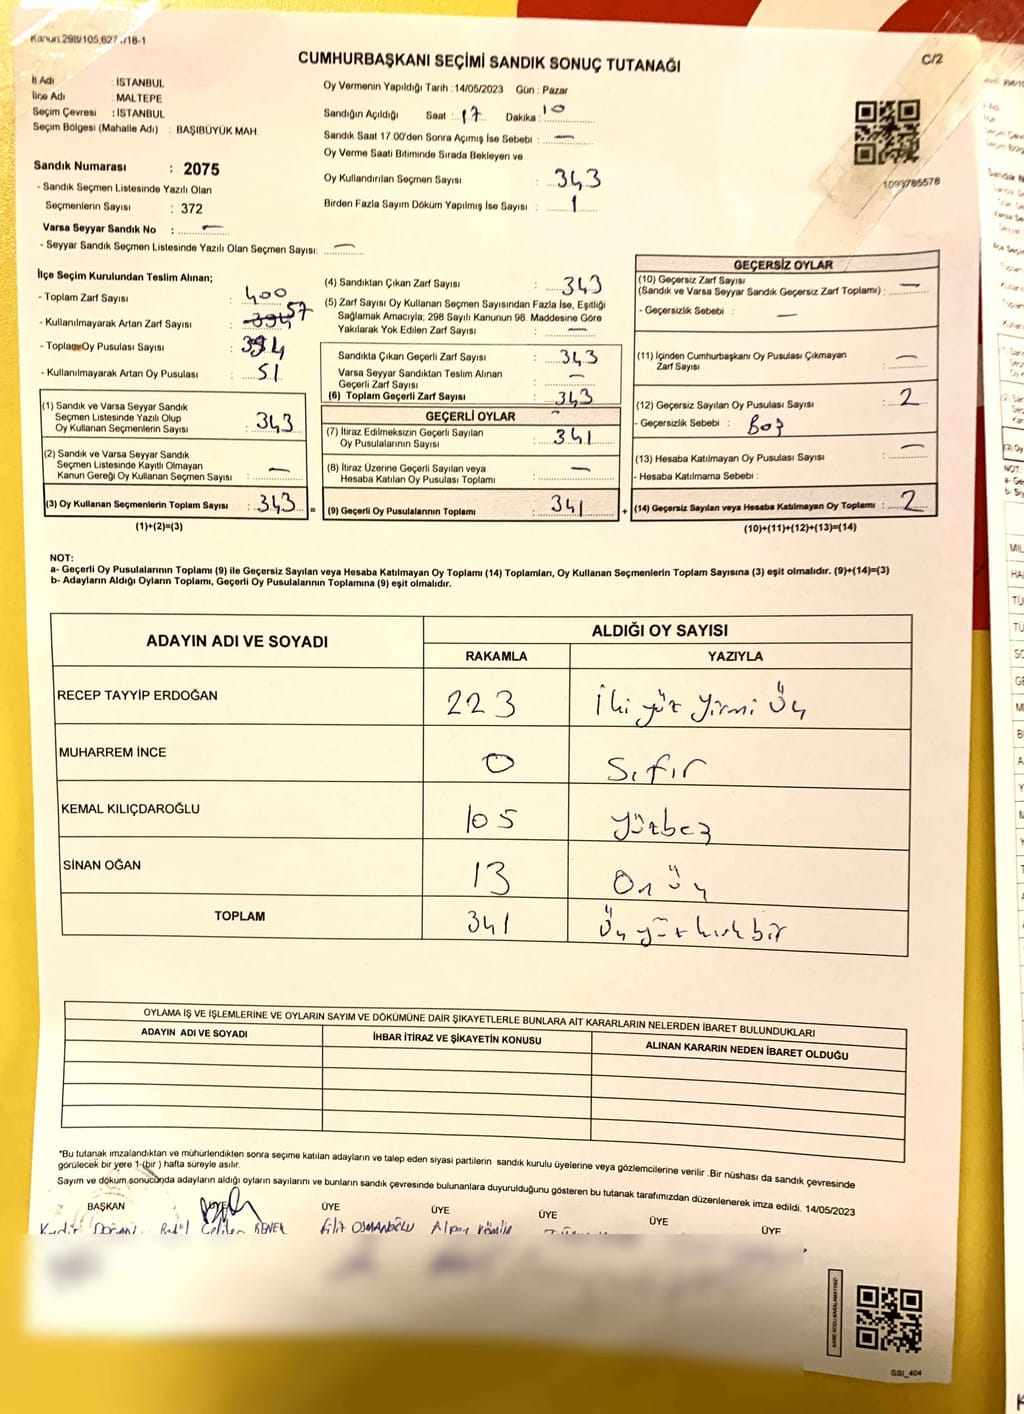 Kanun:298/105,627./18-1
CUMHURBAŞKANI SEÇİMİ SANDIK SONUÇ TUTANAĞI
C/2
İl Adı : İSTANBUL
İlçe Adı : MALTEPE
Seçim Çevresi : İSTANBUL
Seçim Bölgesi (Mahalle Adı) : BAŞIBÜYÜK MAH.
Sandık Numarası : 2075
- Sandık Seçmen Listesinde Yazılı Olan
Seçmenlerin Sayısı : 372
Varsa Seyyar Sandık No : —
- Seyyar Sandık Seçmen Listesinde Yazılı Olan Seçmen Sayısı: —
Oy Vermenin Yapıldığı Tarih : 14/05/2023 Gün : Pazar
Sandığın Açıldığı Saat : 17 Dakika : 10
Sandık Saat 17.00'den Sonra Açımış İse Sebebi : —
Oy Verme Saati Bitiminde Sırada Bekleyen ve
Oy Kullandırılan Seçmen Sayısı : 343
Birden Fazla Sayım Döküm Yapılmış İse Sayısı : 1
1099785578
İlçe Seçim Kurulundan Teslim Alınan;
- Toplam Zarf Sayısı : 400
- Kullanılmayarak Artan Zarf Sayısı : 57
- Toplam Oy Pusulası Sayısı : 394
- Kullanılmayarak Artan Oy Pusulası : 51
(1) Sandık ve Varsa Seyyar Sandık
Seçmen Listesinde Yazılı Olup
Oy Kullanan Seçmenlerin Sayısı : 343
(2) Sandık ve Varsa Seyyar Sandık
Seçmen Listesinde Kayıtlı Olmayan
Kanun Gereği Oy Kullanan Seçmen Sayısı : —
(3) Oy Kullanan Seçmenlerin Toplam Sayısı : 343 =
(1)+(2)=(3)
(4) Sandıktan Çıkan Zarf Sayısı : 343
(5) Zarf Sayısı Oy Kullanan Seçmen Sayısından Fazla İse, Eşitliği
Sağlamak Amacıyla; 298 Sayılı Kanunun 98. Maddesine Göre
Yakılarak Yok Edilen Zarf Sayısı : —
Sandıkta Çıkan Geçerli Zarf Sayısı : 343
Varsa Seyyar Sandıktan Teslim Alınan
Geçerli Zarf Sayısı : —
(6) Toplam Geçerli Zarf Sayısı : 343
GEÇERLİ OYLAR
(7) İtiraz Edilmeksizin Geçerli Sayılan
Oy Pusulalarının Sayısı : 341
(8) İtiraz Üzerine Geçerli Sayılan veya
Hesaba Katılan Oy Pusulası Toplamı : —
(9) Geçerli Oy Pusulalarının Toplamı : 341 +
GEÇERSİZ OYLAR
(10) Geçersiz Zarf Sayısı
(Sandık ve Varsa Seyyar Sandık Geçersiz Zarf Toplamı) : —
- Geçersizlik Sebebi : —
(11) İçinden Cumhurbaşkanı Oy Pusulası Çıkmayan
Zarf Sayısı : —
(12) Geçersiz Sayılan Oy Pusulası Sayısı : 2
- Geçersizlik Sebebi : Boş
(13) Hesaba Katılmayan Oy Pusulası Sayısı : —
- Hesaba Katılmama Sebebi :
(14) Geçersiz Sayılan veya Hesaba Katılmayan Oy Toplamı : 2
(10)+(11)+(12)+(13)=(14)
NOT:
a- Geçerli Oy Pusulalarının Toplamı (9) ile Geçersiz Sayılan veya Hesaba Katılmayan Oy Toplamı (14) Toplamları, Oy Kullanan Seçmenlerin Toplam Sayısına (3) eşit olmalıdır. (9)+(14)=(3)
b- Adayların Aldığı Oyların Toplamı, Geçerli Oy Pusulalarının Toplamına (9) eşit olmalıdır.
ADAYIN ADI VE SOYADI
ALDIĞI OY SAYISI
RAKAMLA YAZIYLA
RECEP TAYYİP ERDOĞAN 223 İki yüz yirmi üç
MUHARREM İNCE 0 Sıfır
KEMAL KILIÇDAROĞLU 105 yüzbeş
SİNAN OĞAN 13 On üç
TOPLAM 341 Üç yüz kırk bir
OYLAMA İŞ VE İŞLEMLERİNE VE OYLARIN SAYIM VE DÖKÜMÜNE DAİR ŞİKAYETLERLE BUNLARA AİT KARARLARIN NELERDEN İBARET BULUNDUKLARI
ADAYIN ADI VE SOYADI İHBAR İTİRAZ VE ŞİKAYETİN KONUSU ALINAN KARARIN NEDEN İBARET OLDUĞU
*Bu tutanak imzalandıktan ve mühürlendikten sonra seçime katılan adayların ve talep eden siyasi partilerin sandık kurulu üyelerine veya gözlemcilerine verilir .Bir nüshası da sandık çevresinde
görülecek bir yere 1-(bir ) hafta süreyle asılır.
Sayım ve döküm sonucunda adayların aldığı oyların sayılarını ve bunların sandık çevresinde bulunanlara duyurulduğunu gösteren bu tutanak tarafımızdan düzenlenerek imza edildi. 14/05/2023
BAŞKAN ÜYE ÜYE ÜYE ÜYE ÜYE
OSMANOĞLU Alpay
SSI_404